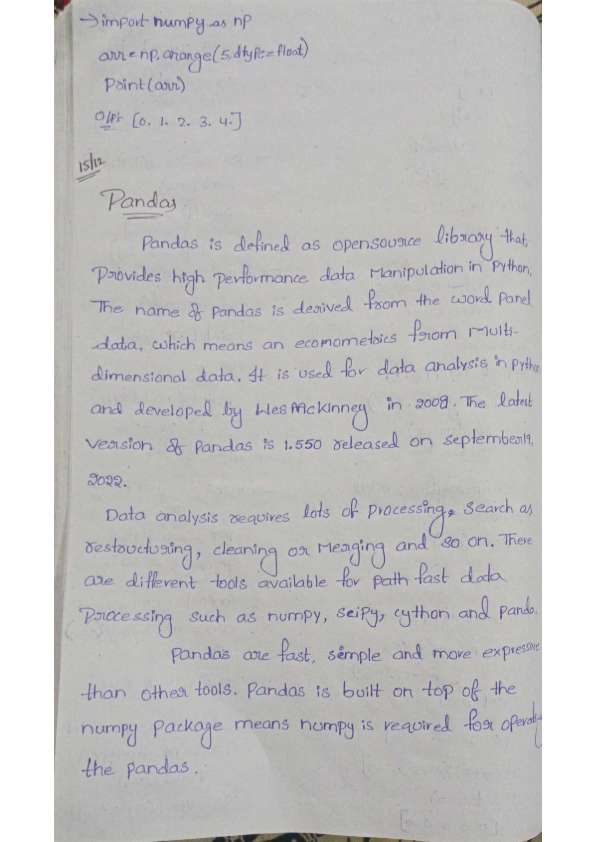 →import numpy as np
arr = np.arange(5, dtype=float)
Print(arr)
O/P:- [0. 1. 2. 3. 4.]
15/12
Pandas
Pandas is defined as opensource library that
Provides high performance data Manipulation in Python.
The name of Pandas is derived from the word Panel
data, which means an ecomometrics from Multi-
dimensional data. It is used for data analysis in pytho
and developed by Wes McKinney in 2008. The latest
Version of Pandas is 1.550 released on september19,
2022.
Data analysis requires lots of processing, Search as
restructuring, cleaning or Merging and so on. There
are different tools available for path fast data
Processing such as numpy, scipy, cython and panda.
Pandas are fast, simple and more expressive
than other tools. Pandas is built on top of the
numpy Package means numpy is required for operati
the pandas.